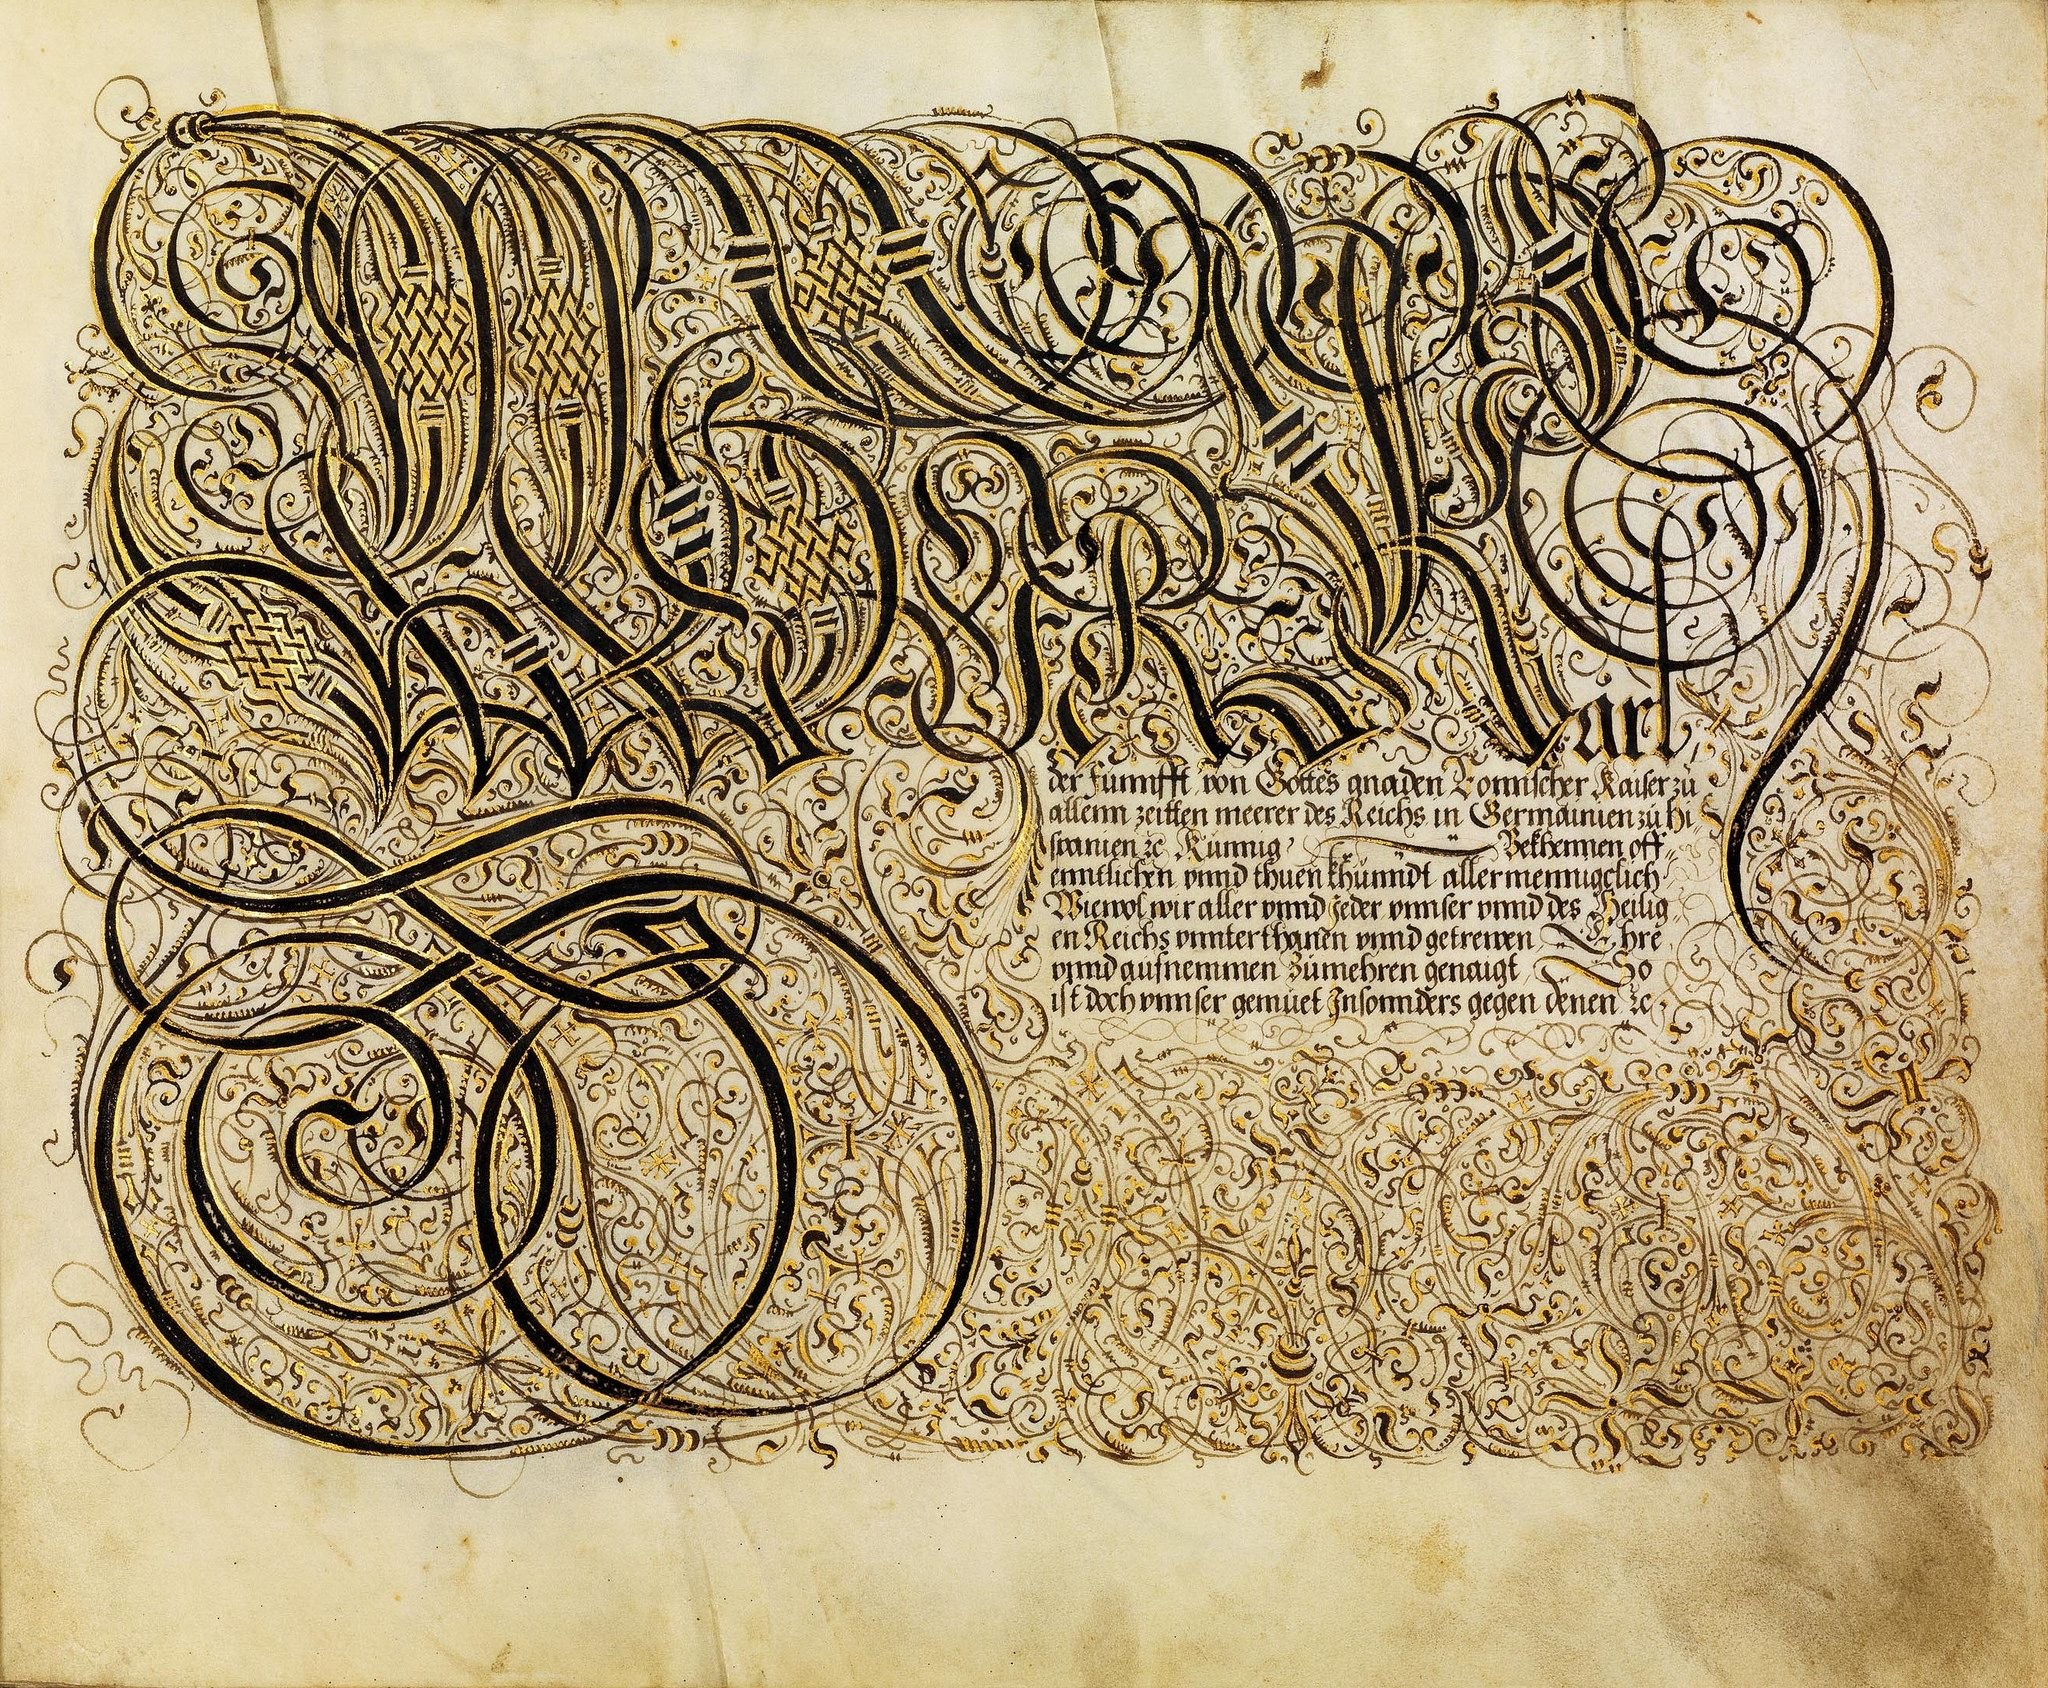 Wir Karl
der Funnfft von Gottes gnaden Romischer Kaiser zu
allenn zeitten meerer des Reichs in Germainien zu hi-
spanien ꝛc Kunnig Bekhennen off-
enntlichen vnnd thuen khunndt allermennigclich
Wiewol wir aller vnnd jeder vnnser vnnd des Heilig-
en Reichs vnnterthanen vnnd getrewen Ehre
vnnd aufnemmen Zumehren genaigt So
ist doch vnnser gemüet Insonnders gegen denen ꝛc